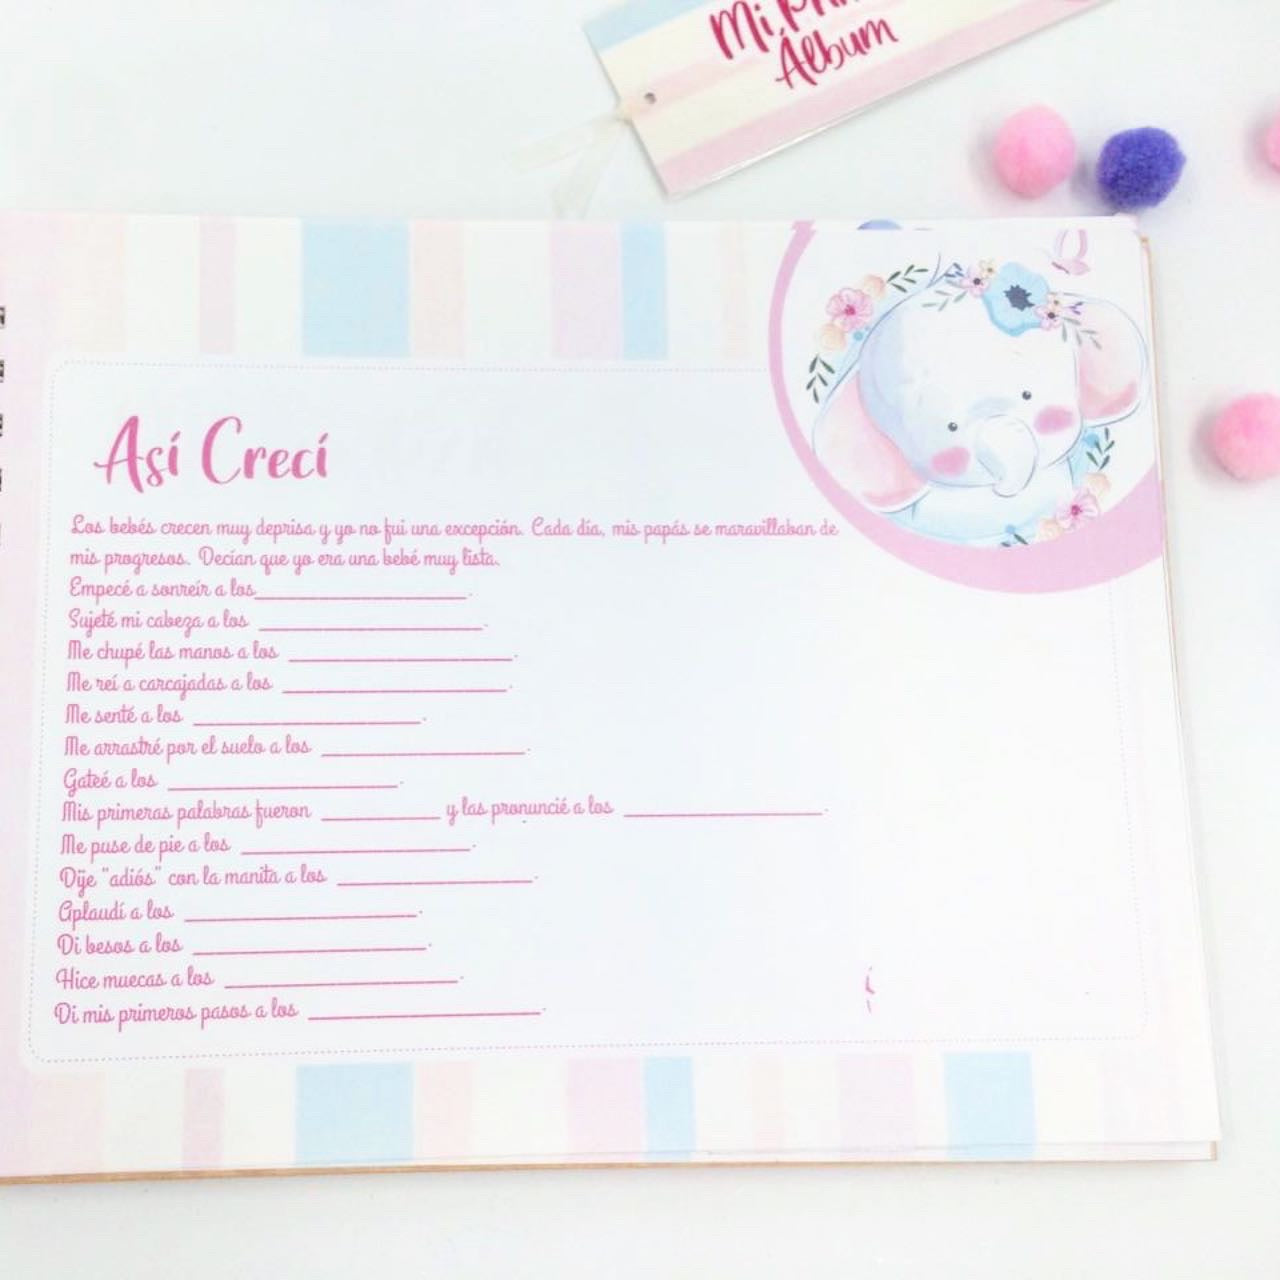 Mi
Álbum
Así Crecí
Los bebés crecen muy deprisa y yo no fui una excepción. Cada día, mis papás se maravillaban de
mis progresos. Decían que yo era una bebé muy lista.
Empecé a sonreír a los____________.
Sujeté mi cabeza a los ____________.
Me chupé las manos a los ____________.
Me reí a carcajadas a los ____________.
Me senté a los ____________.
Me arrastré por el suelo a los ____________.
Gateé a los ____________.
Mis primeras palabras fueron _______ y las pronuncié a los ____________.
Me puse de pie a los ____________.
Dije "adiós" con la manita a los ____________.
Aplaudí a los ____________.
Di besos a los ____________.
Hice muecas a los ____________.
Di mis primeros pasos a los ____________.